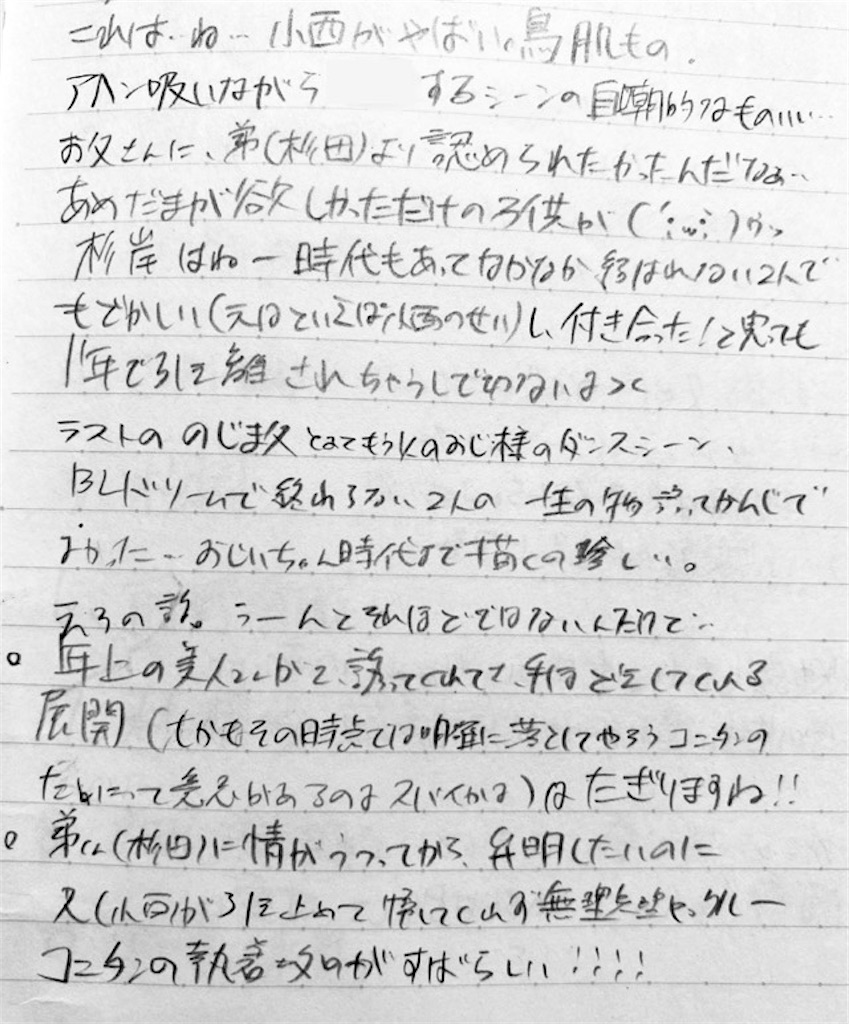 これは…ね… 小西がやばい。鳥肌もの.
アヘン吸いながら するシーンの自嘲的なものいい…
お父さんに、弟(杉田)より認められたかったんだなぁ…
あめだまが欲しかっただけの子供が(´;ω;)ウッ
杉岸はね 一時代もあってなかなか 結ばれない2人で
もどかしい(元はといえば小西のせい)し、付き合った!と思っても
1年で引き離されちゃうしで切ないよ><
ラストの のじま久 とみてもうKのおじ様のダンスシーン、
BLドリームで終わらない 2人の 一生の物語ってかんじで
よかった… おじいちゃん時代まで描くの珍しい。
えろの話。うーんとそれほどではないんだけど…
○ 年上の美人さんが 誘ってくれて、 してくれる
展開(しかもその時点では明確に落としてやろうコニタンの
ためにって意思があるのよ スパイかよ)はたぎりますね!!
○ 弟くん(杉田)に情がうつってから、弁明したいのに
兄(小西)が引き止めて 帰してくれず無理矢理ヤックルー
コニタンの執着攻めがすばらしい!!!!